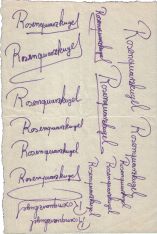 Rosenquarzkugel
Rosenquarzkugel
Rosenquarzkugel
Rosenquarzkugel
Rosenquarzkugel
Rosenquarzkugel
Rosenquarzkugel
Rosenquarzkugel
Rosenquarzkugel
Rosenquarzkugel
Rosenquarzkugel
Rosenquarzkugel
Rosenquarzkugel
Rosenquarzkugel
Rosenquarzkugel
Rosenquarzkugel